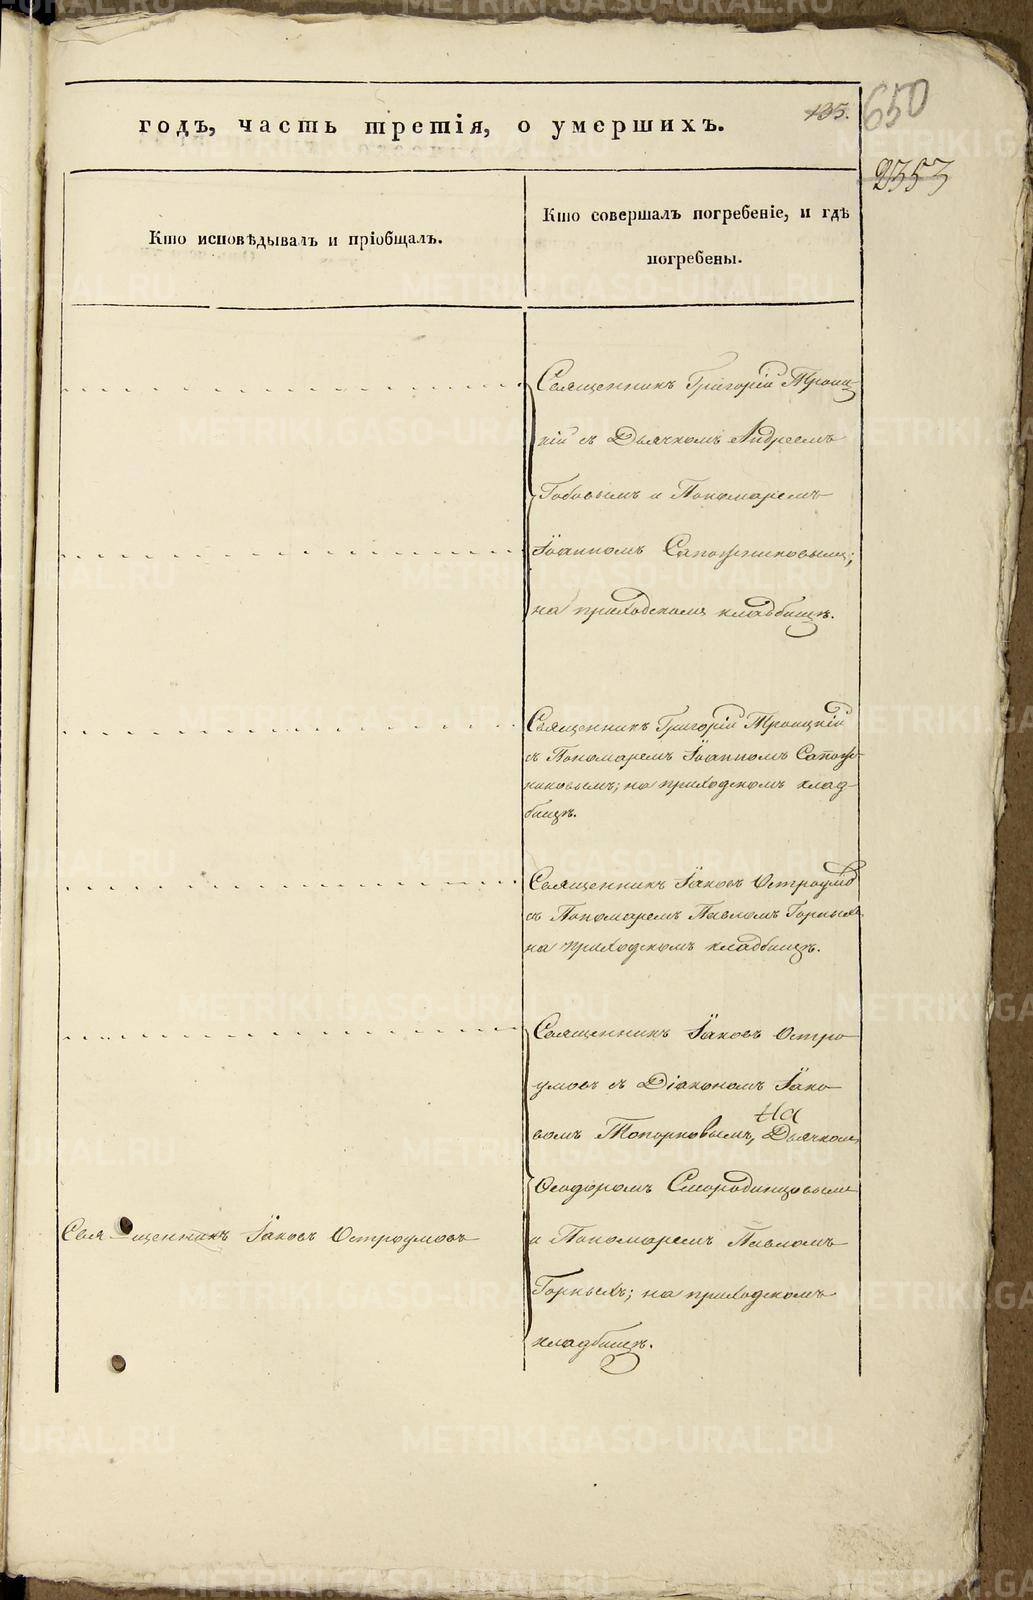 135.
650
2353
годъ, часть третія, о умершихъ.
Кто исповѣдывалъ и пріобщалъ.
Кто совершалъ погребеніе, и гдѣ
погребены.
Священникъ Григорій Троиц-
кій съ Дьячкомъ Андреемъ
и Пономаремъ
Іоанномъ Сапожниковымъ;
на приходскомъ кладбищѣ.
Священникъ Григорій Троицкій
съ Пономаремъ Іоанномъ Сапож-
никовымъ; на приходскомъ клад-
бищѣ.
Священникъ Іаковъ Остроумо
съ Пономаремъ Павломъ Горныхъ
на приходскомъ кладбищѣ.
Священникъ Іаковъ Остро
умовъ съ Діакономъ Іако
вомъ Топорковымъ, На Дьячкомъ
Ѳеодоромъ Смородинцовымъ
Священникъ Іаковъ Остроумовъ
и Пономаремъ Павломъ
Горныхъ; на приходскомъ
кладбищѣ.
METRIKI.GASO-URAL.RU